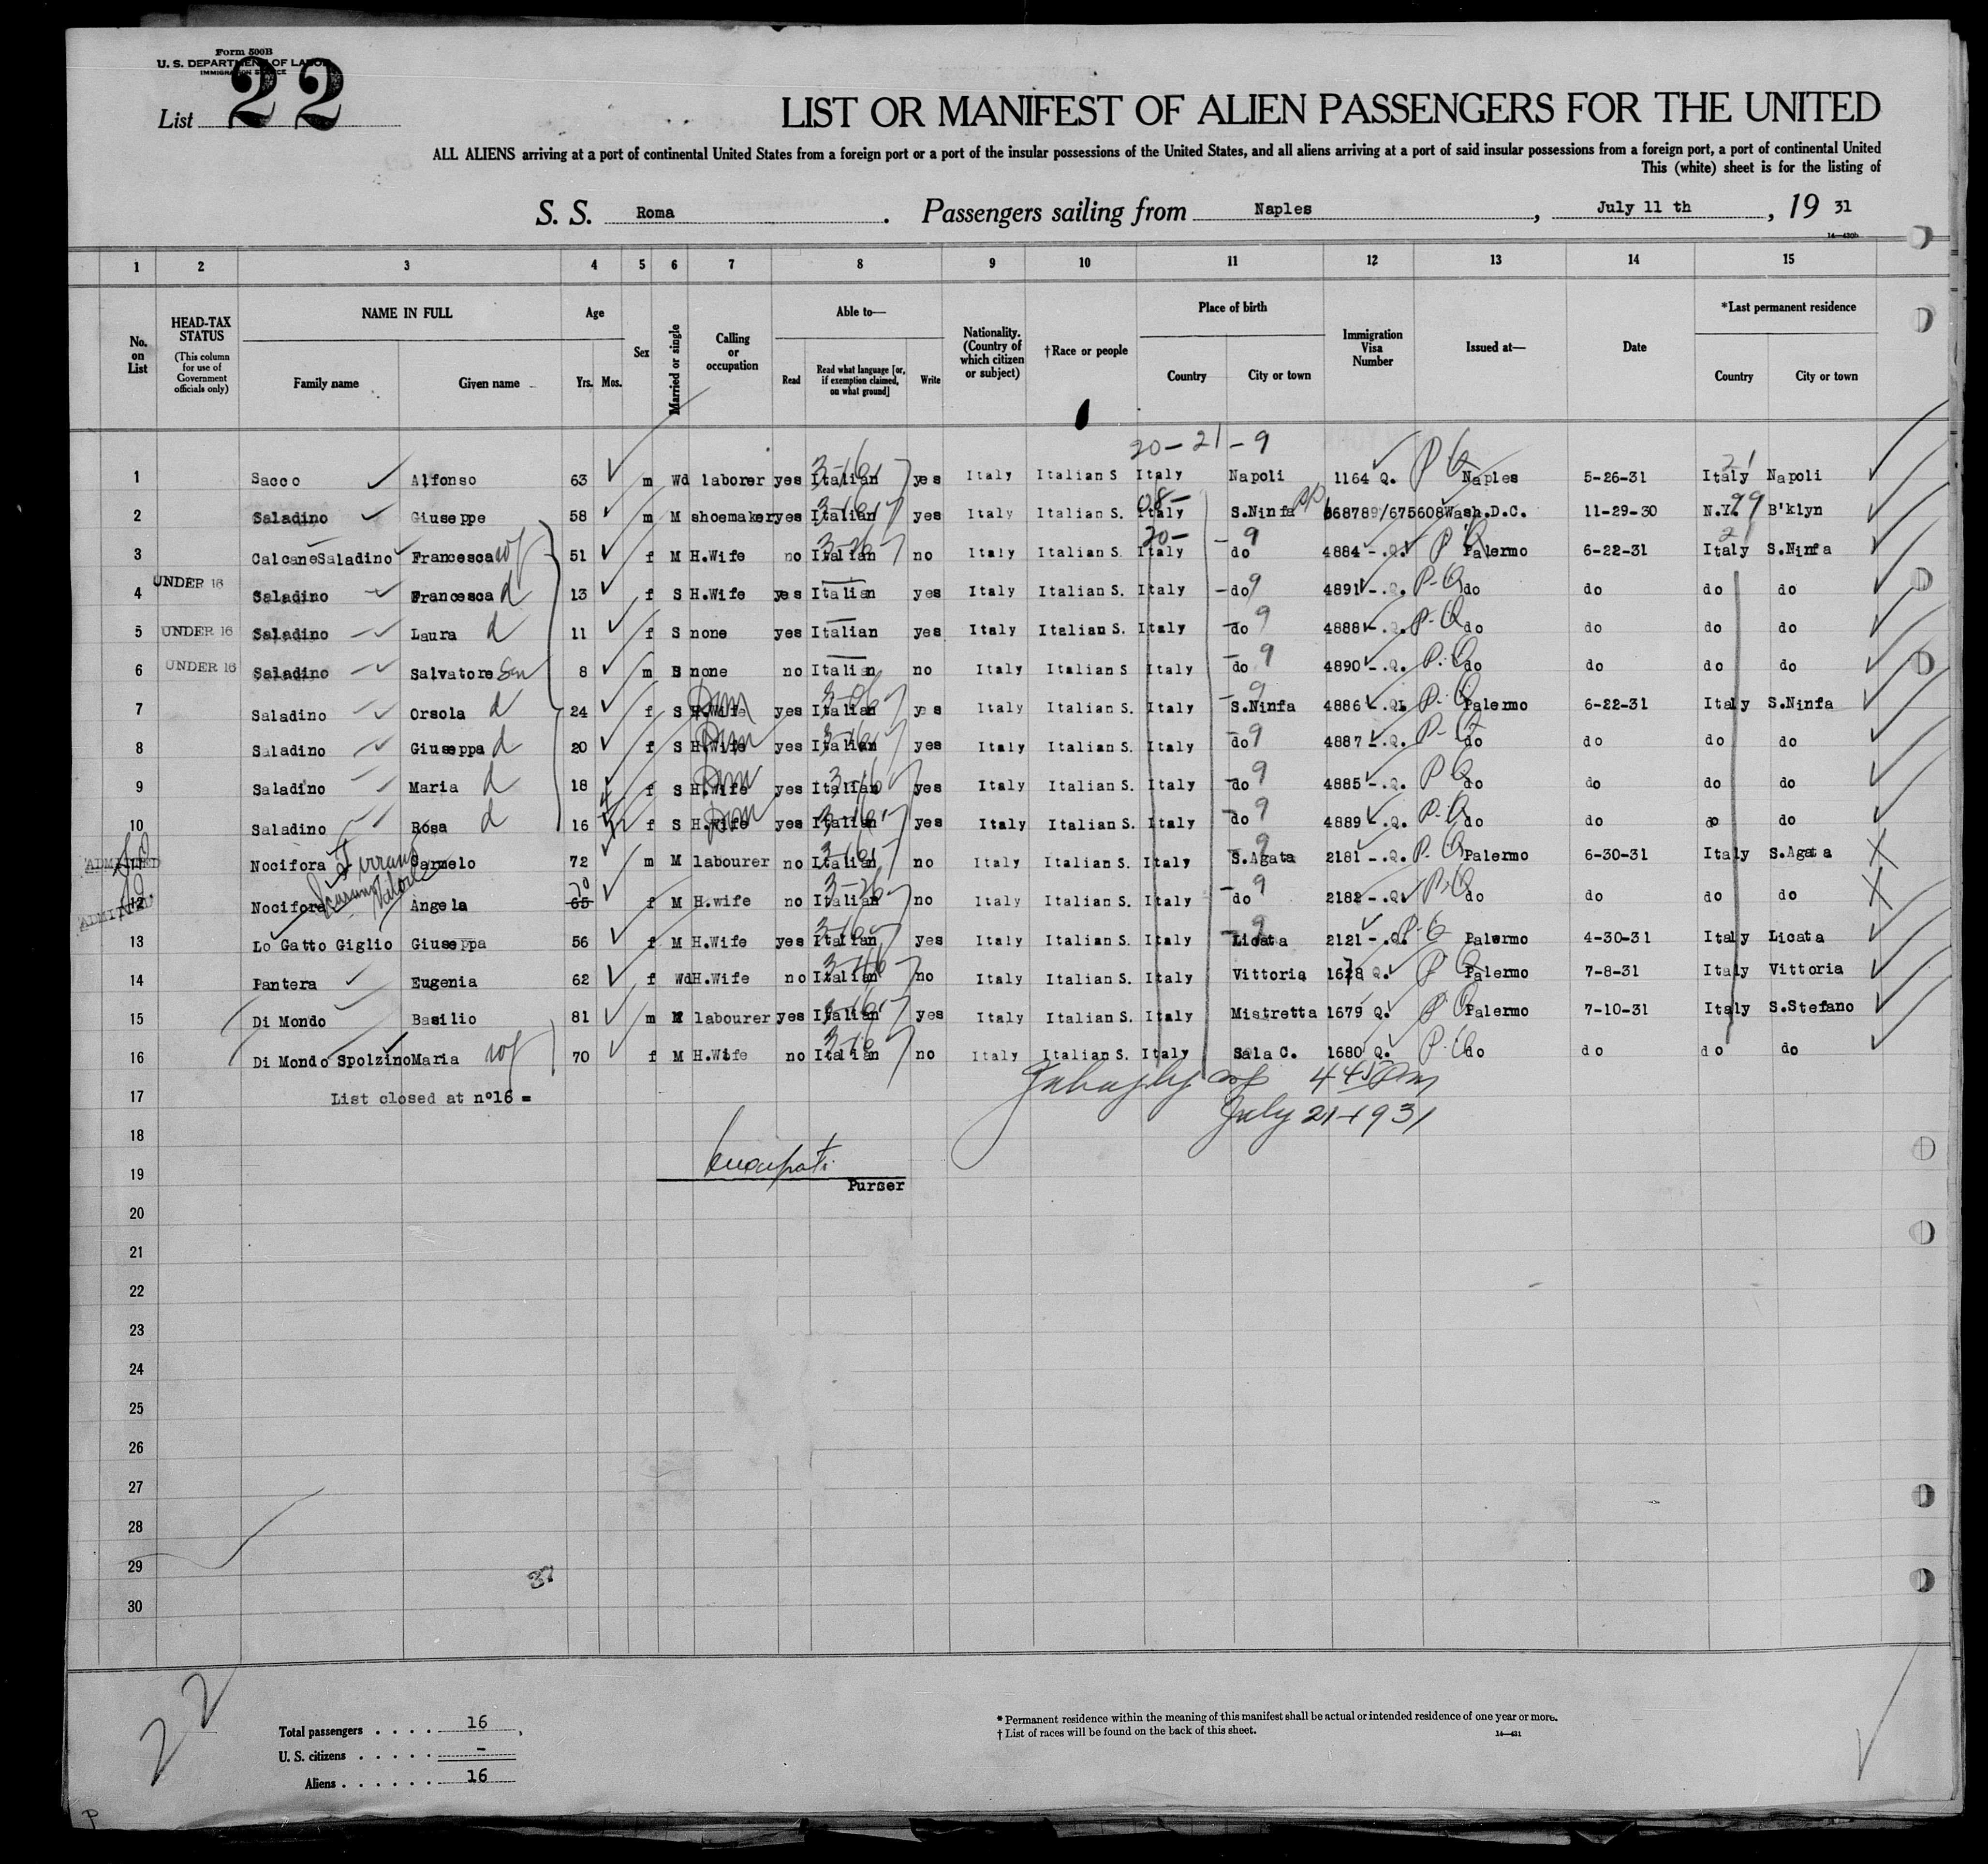 Form 500B
U. S. DEPARTMENT OF LABOR
IMMIGRATION SERVICE
List 22
LIST OR MANIFEST OF ALIEN PASSENGERS FOR THE UNITED
ALL ALIENS arriving at a port of continental United States from a foreign port or a port of the insular possessions of the United States, and all aliens arriving at a port of said insular possessions from a foreign port, a port of continental United
This (white) sheet is for the listing of
S. S. Roma. Passengers sailing from Naples, July 11 th, 19 31
14—430b
1 2 3 4 5 6 7 8 9 10 11 12 13 14 15
No. on List
HEAD-TAX STATUS (This column for use of Government officials only)
NAME IN FULL
Family name Given name
Age
Yrs. Mos.
Sex
Married or single
Calling or occupation
Able to—
Read
Read what language [or, if exemption claimed, on what ground]
Write
Nationality. (Country of which citizen or subject)
†Race or people
Place of birth
Country City or town
Immigration Visa Number
Issued at—
Date
*Last permanent residence
Country City or town
20-21-9
1 Sacco Alfonso 63 m Wd laborer yes Italian yes Italy Italian S Italy Napoli 1164 Q. Naples 5-26-31 Italy Napoli
2 Saladino Giuseppe 58 m M shoemaker yes Italian yes Italy Italian S. Italy S.Ninfa 668789/675608 Wash.D.C. 11-29-30 N.Y. 99 B'klyn
3 Calcane Saladino Francesca wf 51 f M H.Wife no Italian no Italy Italian S. Italy do 9 4884 -.Q. Palermo 6-22-31 Italy S.Ninfa
4 UNDER 16 Saladino Francesca d 13 f S H.Wife yes Italian yes Italy Italian S. Italy do 9 4891 -.Q. do do do do
5 UNDER 16 Saladino Laura d 11 f S none yes Italian yes Italy Italian S. Italy do 9 4888 -.Q. do do do do
6 UNDER 16 Saladino Salvatore Son 8 m S none no Italian no Italy Italian S Italy do 9 4890 -.Q. do do do do
7 Saladino Orsola d 24 f S H.Wife yes Italian yes Italy Italian S. Italy S.Ninfa 4886 -.Q. Palermo 6-22-31 Italy S.Ninfa
8 Saladino Giuseppa d 20 f S H.Wife yes Italian yes Italy Italian S. Italy do 9 4887 -.Q. do do do do
9 Saladino Maria d 18 f S H.Wife yes Italian yes Italy Italian S. Italy do 9 4885 -.Q. do do do do
10 Saladino Rosa d 16 f S H.Wife yes Italian yes Italy Italian S. Italy do 9 4889 -.Q. do do do do
ADMITTED Nocifora Carmelo 72 m M labourer no Italian no Italy Italian S. Italy S.Agata 2181 -.Q. Palermo 6-30-31 Italy S.Agata
ADMITTED 12 Nocifora Angela 65 70 f M H.wife no Italian no Italy Italian S. Italy do 9 2182 -.Q. do do do do
13 Lo Gatto Giglio Giuseppa 56 f M H.Wife yes Italian yes Italy Italian S. Italy Licata 2121 -.Q. Palermo 4-30-31 Italy Licata
14 Pantera Eugenia 62 f Wd H.Wife no Italian no Italy Italian S. Italy Vittoria 1678 Q. Palermo 7-8-31 Italy Vittoria
15 Di Mondo Basilio 81 m M labourer yes Italian yes Italy Italian S. Italy Mistretta 1679 Q. Palermo 7-10-31 Italy S.Stefano
16 Di Mondo Spolzino Maria wf 70 f M H.Wife no Italian no Italy Italian S. Italy Sala C. 1680 Q. do do do do
17 List closed at n°16 =
445 Pm
July 21-1931
18
19
Purser
20
21
22
23
24
25
26
27
28
29
37
30
22
Total passengers . . . . 16
U. S. citizens . . . . . -
Aliens . . . . . . 16
* Permanent residence within the meaning of this manifest shall be actual or intended residence of one year or more.
† List of races will be found on the back of this sheet.
14—431
P